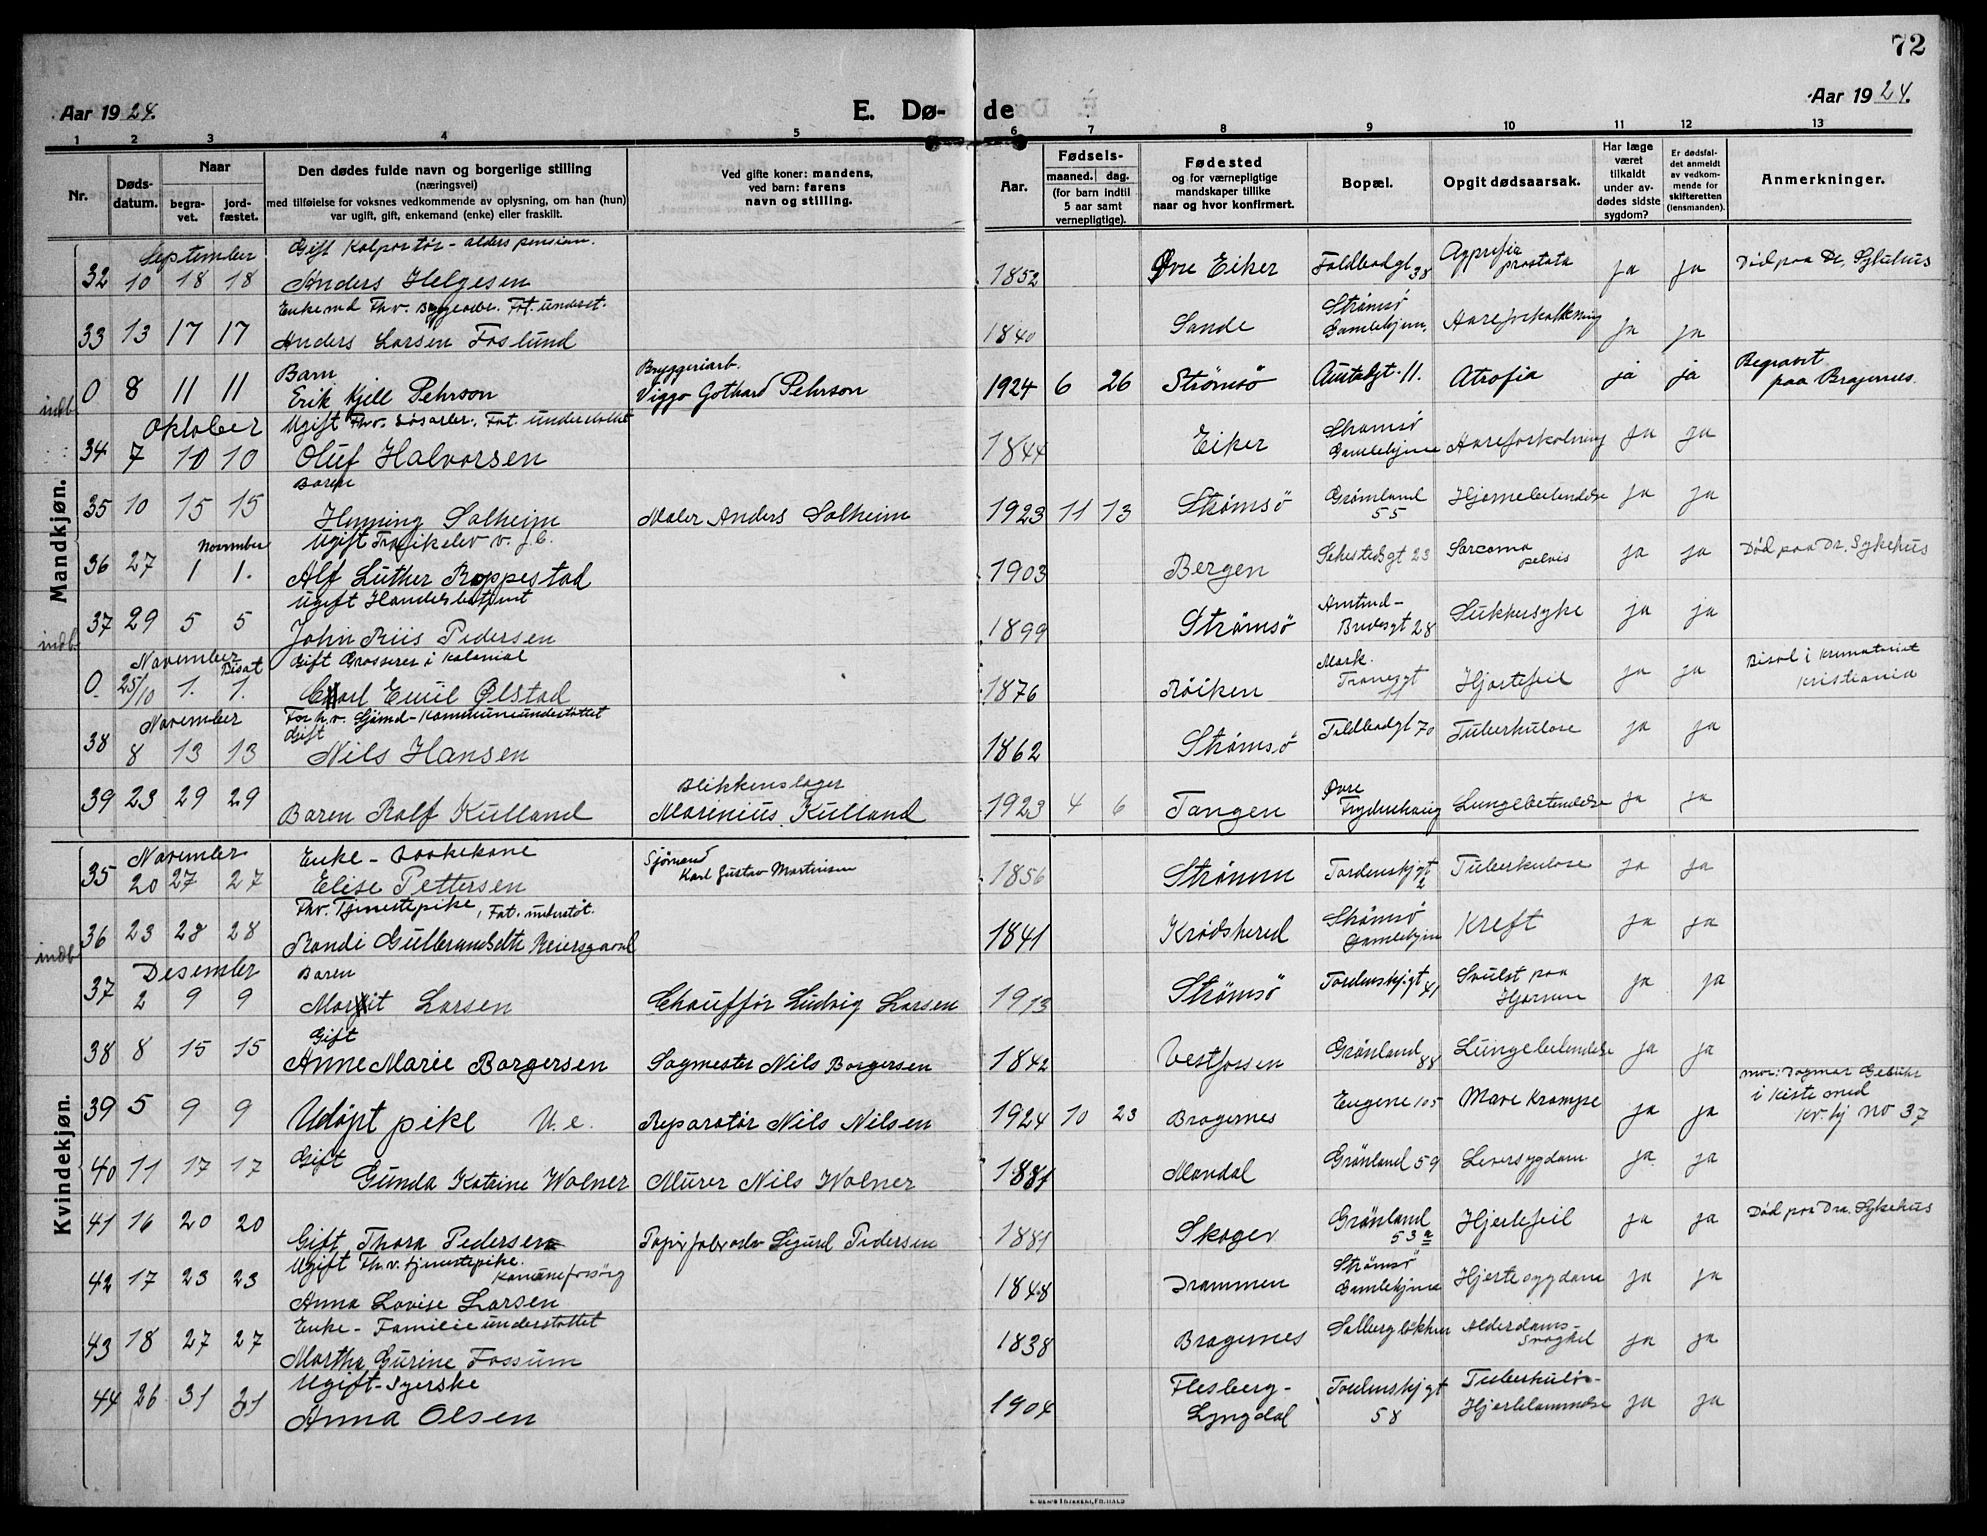 72
Aar 1924.
E. Dø- de
Aar 1924.
1 2 3 4 5 6 7 8 9 10 11 12 13
Nr.
Døds-datum.
Naar
begra-vet.
jord-fæstet.
Den dødes fulde navn og borgerlige stilling
(næringsvei)
med tilføielse for voksnes vedkommende av oplysning, om han (hun)
var ugift, gift, enkemand (enke) eller fraskilt.
Ved gifte koner: mandens,
ved barn: farens
navn og stilling.
Aar.
Fødsels-
maaned. dag.
(for barn indtil
5 aar samt
vernepligtige).
Fødested
og for værnepligtige
mandskaper tillike
naar og hvor konfirmert.
Bopæl.
Opgit dødsaarsak.
Har læge
været
tilkaldt
under av-
dødes sidste
sygdom?
Er dødsfal-
det anmeldt
av vedkom-
mende for
skifteretten
(lensmanden).
Anmerkninger.
Mandkjøn.
September Gift Kolportør - alders pension.
32 10 18 18 Anders Helgesen 1852 Øvre Eiker Toldbodgt 38 prostata ja ja Død paa Dr. Sykehus
Enkemd Fhv. Byggearb. Fat. underst.
33 13 17 17 Anders Larsen Foslund 1840 Sande Strømsø Gamlehjem Aareforkalkning ja ja
Barn Bryggeriarb.
indb 0 8 11 11 Erik Kjell Pehrson Viggo Gothard Pehrson 1924 6 26 Strømsø Austadgt. 11. Atrofia ja ja Begravet paa Bragernes.
Oktober Ugift Fhv. Løsarb. Fat. understøttet
34 7 10 10 Oluf Halvorsen 1844 Eiker Strømsø Gamlehjem Aareforkalkning ja ja
Baren
35 10 15 15 Henning Solheim Maler Anders Solheim 1923 11 13 Strømsø Grønland 55 Hjernebetendelse ja ja
November Ugift Trafikelev v. J.B.
36 27 1 1. Alf Luther Roppestad 1903 Bergen Sehestedsgt 23 Sarcoma pelvis ja ja Død paa Dr. Sykehus
Ugift Handelsbetjent
indb 37 29 5 5 John Riis Pedersen 1899 Strømsø Amtmd- Bredesgt 28 Sukkersyke ja ja
November Bisat Gift Grosserer i kolonial
0. 25/10 1. 1. Carl Emil Ølstad 1876 Røiken Mork. Tranesgt Hjertefeil ja ja Bisat i krematoriet Kristiania
November Forh.v. Sjømd - Kommuneunderstøttet
Gift
38 8 13 13 Nils Hansen 1862 Strømsø Toldbodgt 70 Tuberkulose ja ja
Blikkenslager
39 23 29 29 Baren Ralf Kulland Marinius Kulland 1923 4 6 Tangen Øvre Lungebetendelse ja ja
Kvindekjøn.
November Enke - Vaskekone Sjømand
35 20 27 27 Elise Pettersen Karl Gustav Martinsen 1856 Strømm Tordenskj gt 2 Tuberkulose ja ja
Fhv. Tjenestepike, Fat. understøt.
indb 36 23 28 28 Randi Gulbrandsdtr Reiersgaard 1841 Krødshered Strømsø Gamlehjem Kreft ja ja
Desember Baren
37 2 9 9 Margit Larsen Chauffør Ludvig Larsen 1913 Strømsø Tordenskj.gt 41 Svulst paa Hjernen ja ja
Gift
38 8 15 15 Anne Marie Borgersen Sagmester Nils Borgersen 1842 Vestfossen Grønland 88 Lungebetendelse ja ja
39 5 9 9 Udøpt pike U.e. Reparatør Nils Nilsen 1924 10 23 Bragernes Eugene 105 Mave Krampe ja ja mor: Dagmar i Kiste med kv.kj No 37
Gift
40 11 17 17 Gunda Katrine Wolner Murer Nils Wolner 1881 Mandal Grønland 59 Leversygdom ja ja
41 16 20 20 Gift Thora Pedersen Papirfabrarb Sigurd Pedersen 1881 Skoger Grønland 53 a Hjertefeil ja ja Død paa Dra. Sykehus
Ugift Fh.v. tjenestepike.
42 17 23 23 Anna Lovise Larsen 1848 Drammen Strømsø Gamlehjem Hjertesygdom ja ja
Enke - Familie understøttet
43 18 27 27 Martha Gurine Fossum 1838 Bragernes Solbergløkken Alderdoms- svaghet ja ja
Ugift - Syerske
44 26 31 31 Anna Olsen 1904 Flesberg - Lyngdal Tordenskj gt 58 Tuberkuløs- ja ja